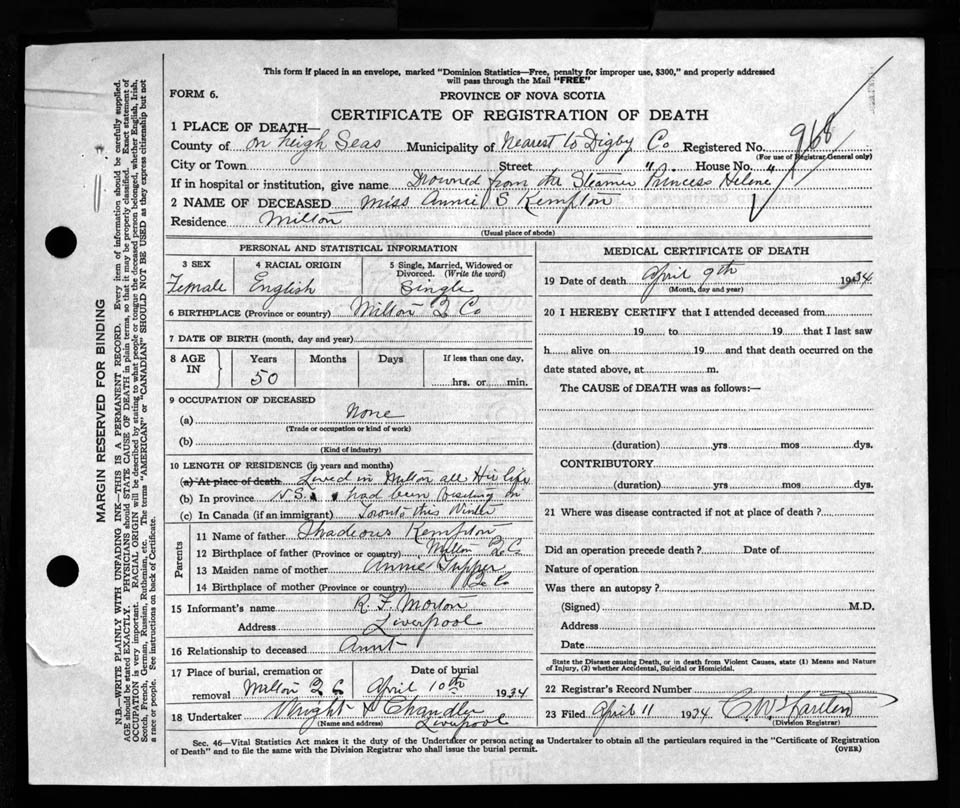 This form if placed in an envelope, marked "Dominion Statistics—Free, penalty for improper use, $300," and properly addressed
will pass through the Mail "FREE"
FORM 6.
PROVINCE OF NOVA SCOTIA
CERTIFICATE OF REGISTRATION OF DEATH
1 PLACE OF DEATH—
County of on High Seas Municipality of Nearest to Digby Co Registered No. 968
(For use of Registrar-General only)
City or Town Street House No.
If in hospital or institution, give name Drowned from the Steamer "Princess Helene"
2 NAME OF DECEASED Miss Annie S Kempton
Residence Milton
(Usual place of abode)
PERSONAL AND STATISTICAL INFORMATION
3 SEX
Female
4 RACIAL ORIGIN
English
5 Single, Married, Widowed or
Divorced. (Write the word)
Single
6 BIRTHPLACE (Province or country) Milton Q Co
7 DATE OF BIRTH (month, day and year)
8 AGE
IN
Years
50
Months
Days
If less than one day,
hrs. or min.
9 OCCUPATION OF DECEASED
(a) None
(Trade or occupation or kind of work)
(b)
(Kind of industry)
10 LENGTH OF RESIDENCE (in years and months)
(a) At place of death Lived in Milton all Her life
(b) In province N.S. had been Visiting in
(c) In Canada (if an immigrant) Toronto this Winter
Parents
11 Name of father Thadeous Kempton
12 Birthplace of father (Province or country) Milton Q Co
13 Maiden name of mother Annie Tupper
14 Birthplace of mother (Province or country) Q Co
15 Informant's name R. F. Morton
Address Liverpool
16 Relationship to deceased Aunt
17 Place of burial, cremation or
removal Milton Q C
Date of burial
April 10th 1934
18 Undertaker Wright & Chandler
(Name and address) Liverpool
MEDICAL CERTIFICATE OF DEATH
19 Date of death April 9th 1934
(Month, day and year)
20 I HEREBY CERTIFY that I attended deceased from
19 to 19 that I last saw
h alive on 19 and that death occurred on the
date stated above, at m.
The CAUSE of DEATH was as follows:—
(duration) yrs mos dys.
CONTRIBUTORY
(duration) yrs mos dys.
21 Where was disease contracted if not at place of death?
Did an operation precede death? Date of
Nature of operation
Was there an autopsy?
(Signed) M.D.
Address
Date
State the Disease causing Death, or in death from Violent Causes, state (1) Means and Nature
of Injury, (2) whether Accidental, Suicidal or Homicidal.
22 Registrar's Record Number
23 Filed April 11 1934 C. W.
(Division Registrar)
Sec. 46—Vital Statistics Act makes it the duty of the Undertaker or person acting as Undertaker to obtain all the particulars required in the "Certificate of Registration
of Death" and to file the same with the Division Registrar who shall issue the burial permit.
(OVER)
MARGIN RESERVED FOR BINDING
N.B.—WRITE PLAINLY WITH UNFADING INK—THIS IS A PERMANENT RECORD. Every item of information should be carefully supplied.
AGE should be stated EXACTLY. PHYSICIANS should STATE CAUSE OF DEATH in plain terms, so that it may be properly classified. Exact statement of
OCCUPATION is very important. RACIAL ORIGIN will be described by stating to what people or tongue the deceased person belonged, whether English, Irish,
Scotch, French, German, Russian, Ruthenian, etc. The terms "AMERICAN" or "CANADIAN" SHOULD NOT BE USED as they express citizenship but not
a race or people. See instructions on back of Certificate.